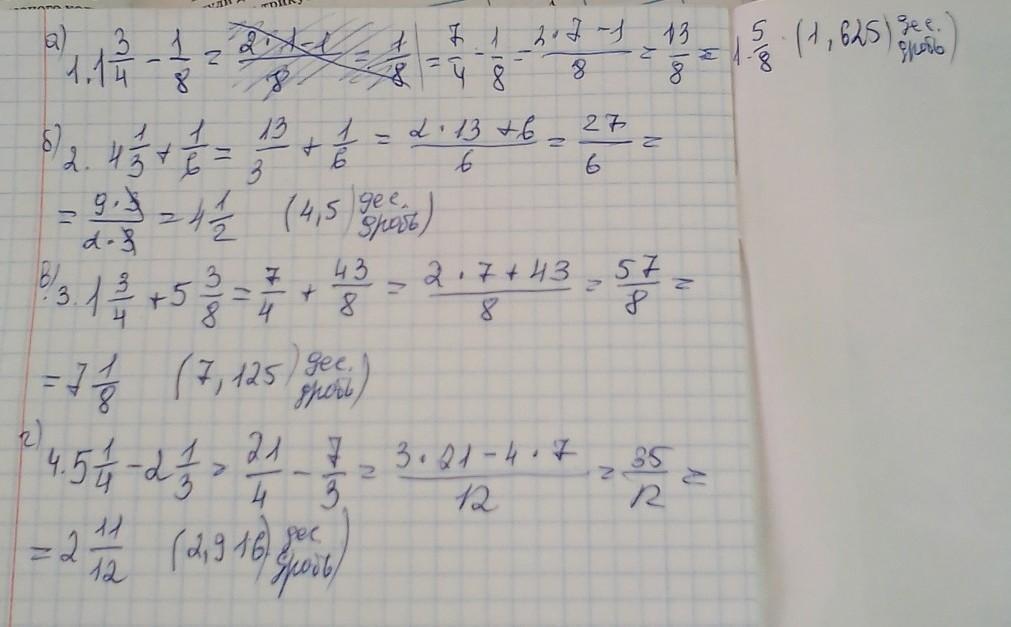 а) 1. 1 3/4 − 1/8 = (2·1−1)/8 = 1/8 = 7/4 − 1/8 = (2·7−1)/8 = 13/8 = 1 5/8 (1,625) дес. дробь)
б) 2. 4 1/3 + 1/6 = 13/3 + 1/6 = (2·13+6)/6 = 27/6 =
= (9·3)/(2·3) = 4 1/2 (4,5) дес. дробь)
в) 3. 1 3/4 + 5 3/8 = 7/4 + 43/8 = (2·7+43)/8 = 57/8 =
= 7 1/8 (7,125) дес. дробь)
г) 4. 5 1/4 − 2 1/3 = 21/4 − 7/3 = (3·21−4·7)/12 = 35/12 =
= 2 11/12 (2,916) дес. дробь)